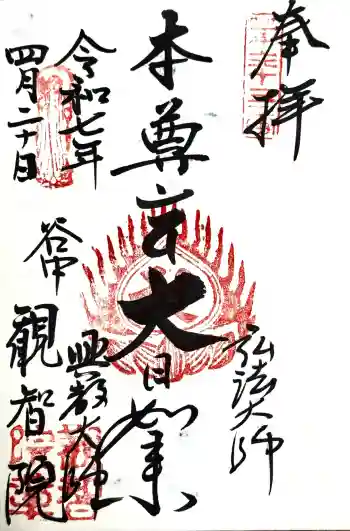 奉拝
弘法大師
本尊大日如来
興教大師
令和七年
四月二十日
谷中
観智院